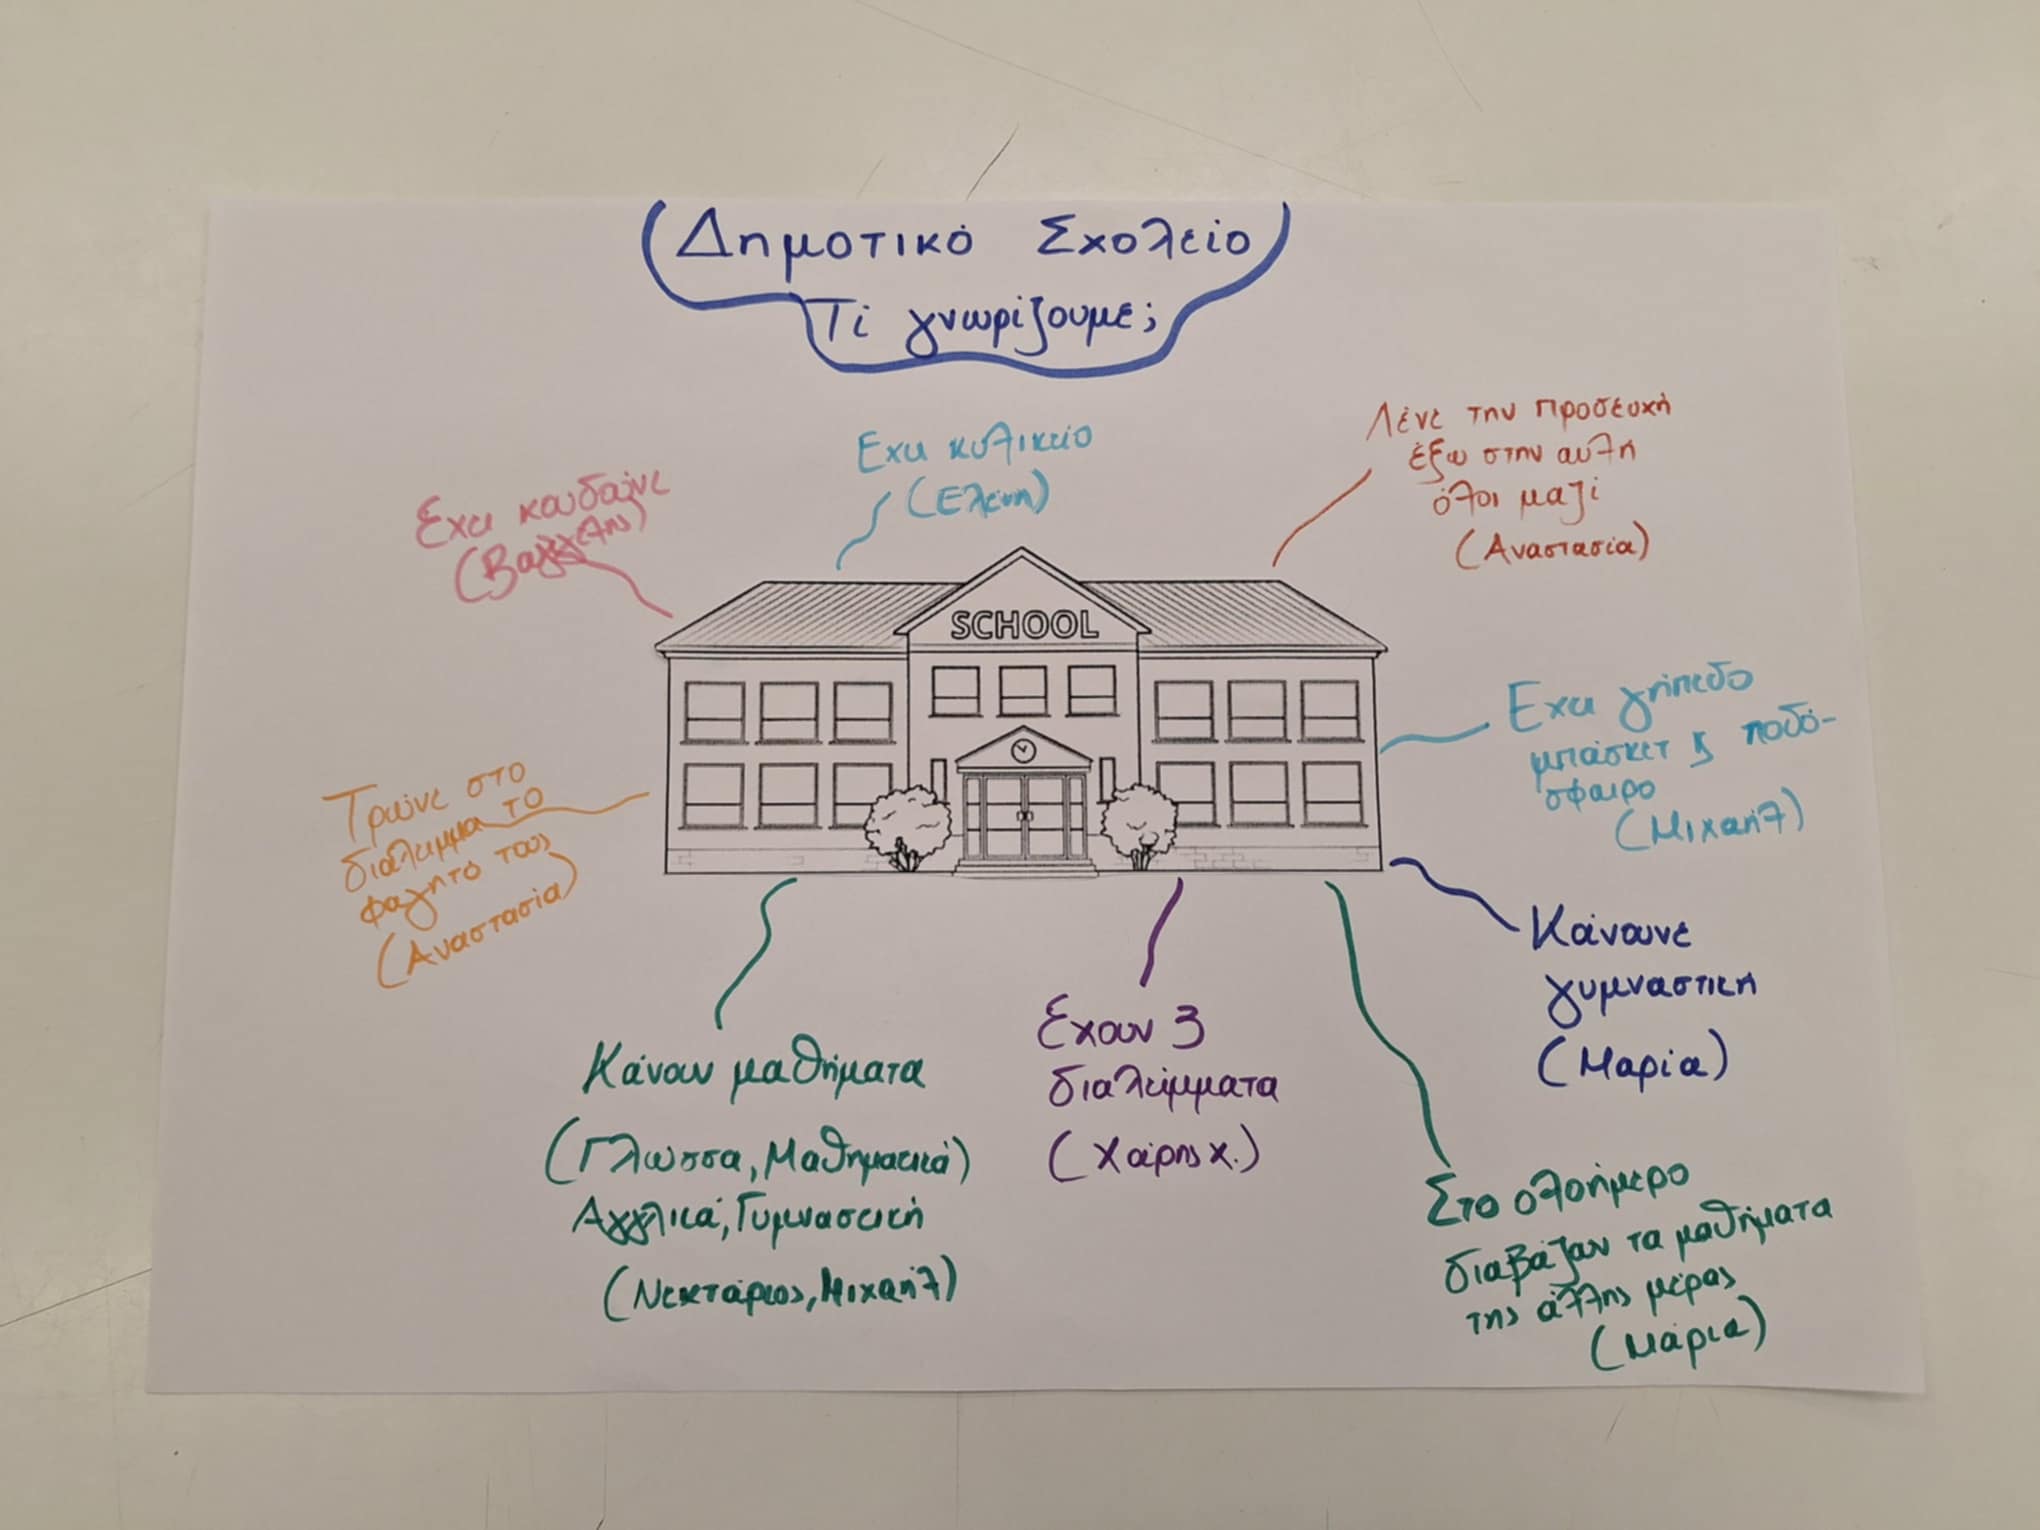 Δημοτικό Σχολείο
Τί γνωρίζουμε;
Εχει κυλικείο
(Ελένη)
Λένε την προσευχή
έξω στην αυλή
όλοι μαζί
(Αναστασία)
Εχει κουδούνι
(Βαγγέλης)
SCHOOL
Εχει γήπεδο
μπάσκετ ς ποδό-
σφαιρο
(Μιχαήλ)
Τρώνε στο
διάλειμμα το
φαγητό τους
(Αναστασία)
Κάνουνε
γυμναστική
(Μαρία)
Κάνουν μαθήματα
(Γλώσσα, Μαθηματικά)
Αγγλικά, Γυμναστική
(Νεκτάριος, Μιχαήλ)
Εχουν 3
διαλείμματα
(Χάρης Χ.)
Στο ολοήμερο
διαβάζουν τα μαθήματα
της άλλης μέρας
(Μάρια)